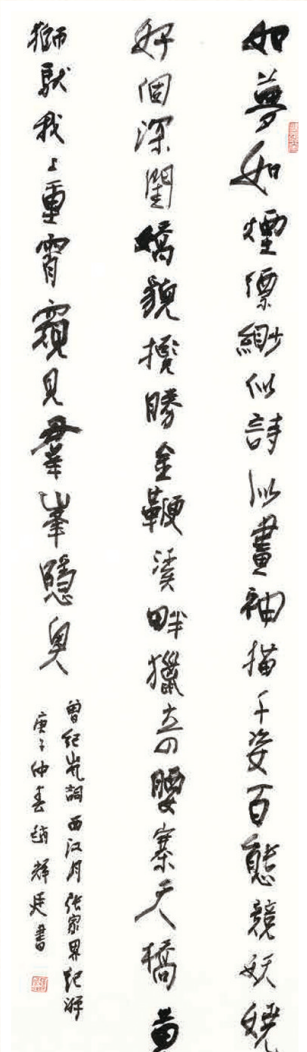 如梦如烟缥缈似詩似畫袖描千姿百態競妖嬈
好個深閨嬌貌攬勝金鞭溪畔獵奇四腰寨天橋黄
獅馱我上重霄窺見群峯隱奥
曾纪岚詞西江月张家界纪游
庚子仲春趙輝廷書